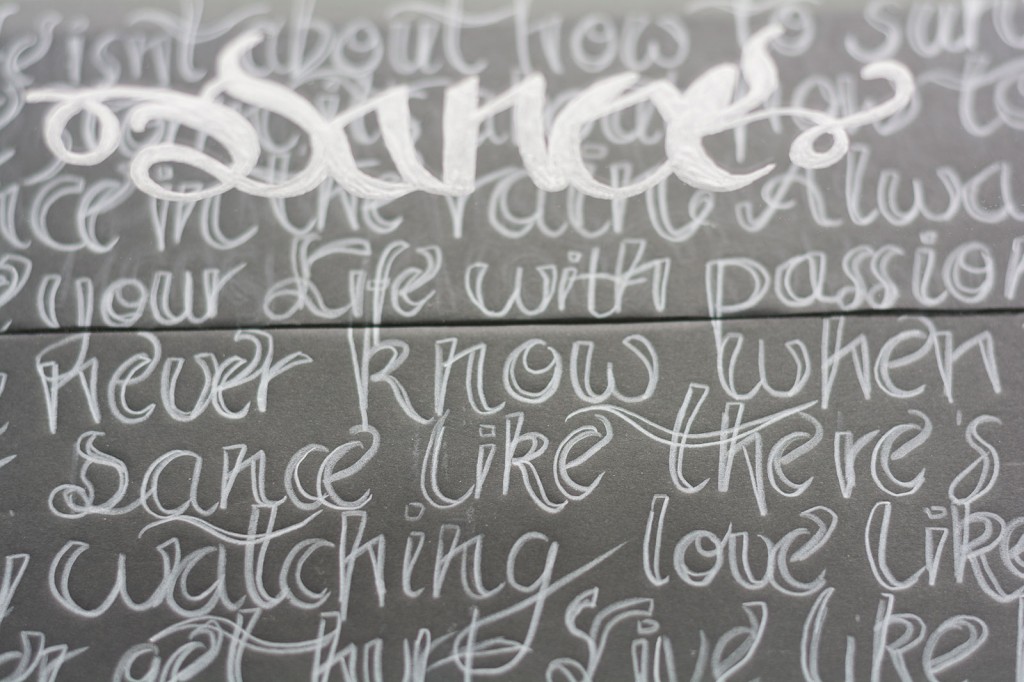 isnt about how to
Dance
how to
in the rain. Alwa
your Life with passion
never know when
Dance like there's
watching love like
get hurt Live like